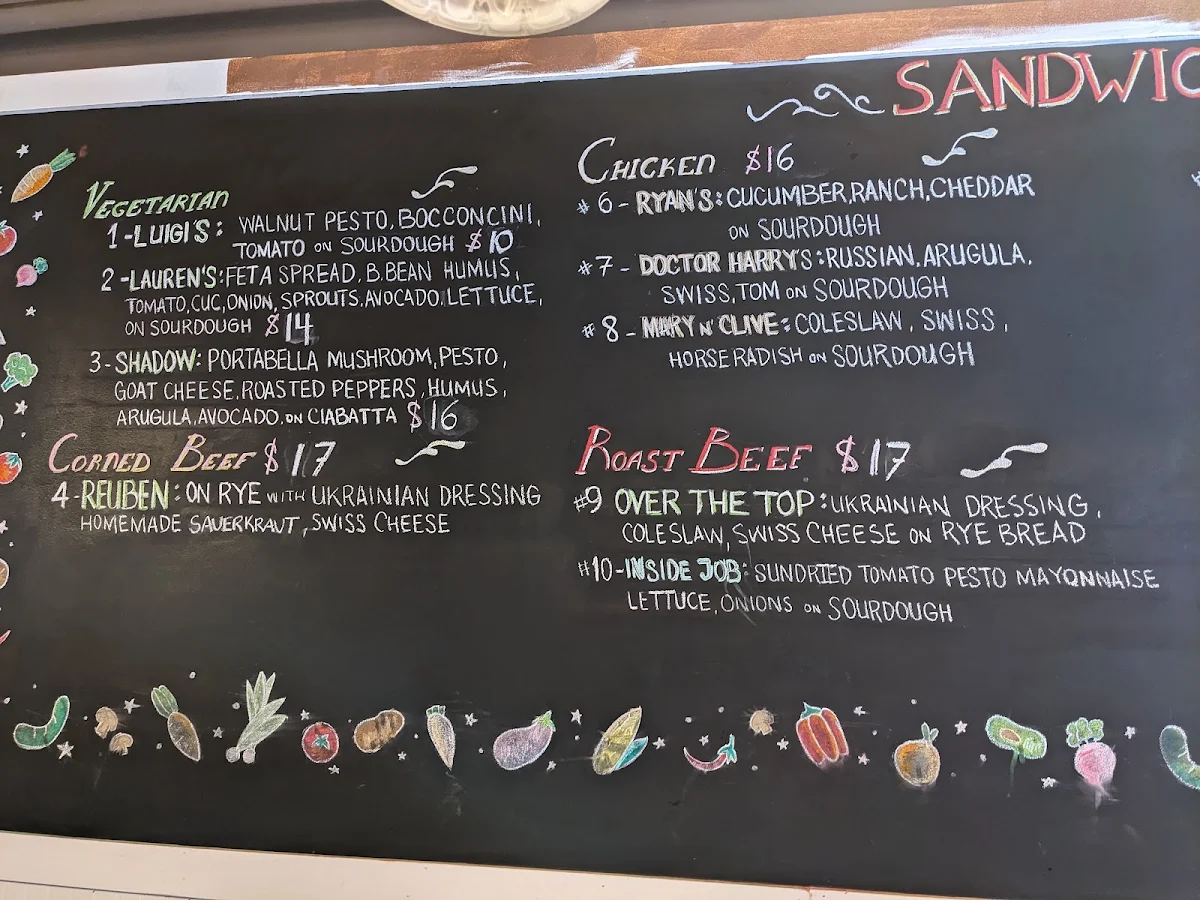 SANDWIC
VEGETARIAN
1-LUIGI'S: WALNUT PESTO, BOCCONCINI,
TOMATO ON SOURDOUGH $10
2-LAUREN'S: FETA SPREAD, B.BEAN HUMUS,
TOMATO, CUC, ONION, SPROUTS, AVOCADO, LETTUCE,
ON SOURDOUGH $14
3-SHADOW: PORTABELLA MUSHROOM, PESTO,
GOAT CHEESE, ROASTED PEPPERS, HUMUS,
ARUGULA, AVOCADO, ON CIABATTA $16
CORNED BEEF $17
4-REUBEN: ON RYE WITH UKRAINIAN DRESSING
HOMEMADE SAUERKRAUT, SWISS CHEESE
CHICKEN $16
#6-RYAN'S: CUCUMBER, RANCH, CHEDDAR
ON SOURDOUGH
#7-DOCTOR HARRY'S: RUSSIAN, ARUGULA,
SWISS, TOM ON SOURDOUGH
#8-MARY N' CLIVE: COLESLAW, SWISS,
HORSERADISH ON SOURDOUGH
ROAST BEEF $17
#9 OVER THE TOP: UKRAINIAN DRESSING,
COLESLAW, SWISS CHEESE ON RYE BREAD
#10-INSIDE JOB: SUNDRIED TOMATO PESTO MAYONNAISE
LETTUCE, ONIONS ON SOURDOUGH